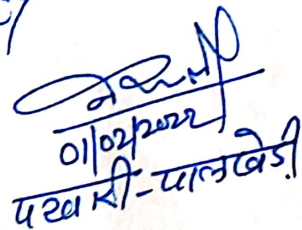 01/02/2022
पटवारी-पालखेड़ी